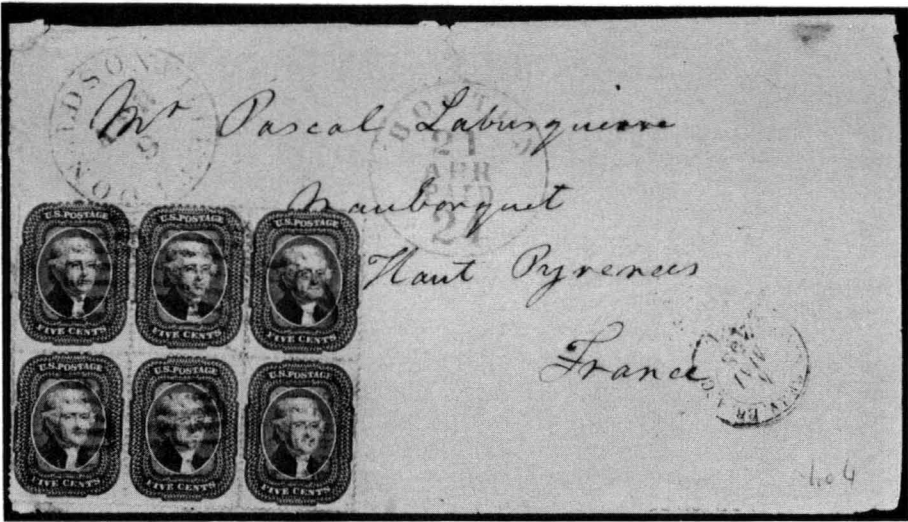 Mr Pascal Labusquiere
Maubourguet
Haut Pyrenees
France
BOSTON
21
APR
PAID
24
U.S. POSTAGE
FIVE CENTS
U.S. POSTAGE
FIVE CENTS
U.S. POSTAGE
FIVE CENTS
U.S. POSTAGE
FIVE CENTS
U.S. POSTAGE
FIVE CENTS
U.S. POSTAGE
FIVE CENTS